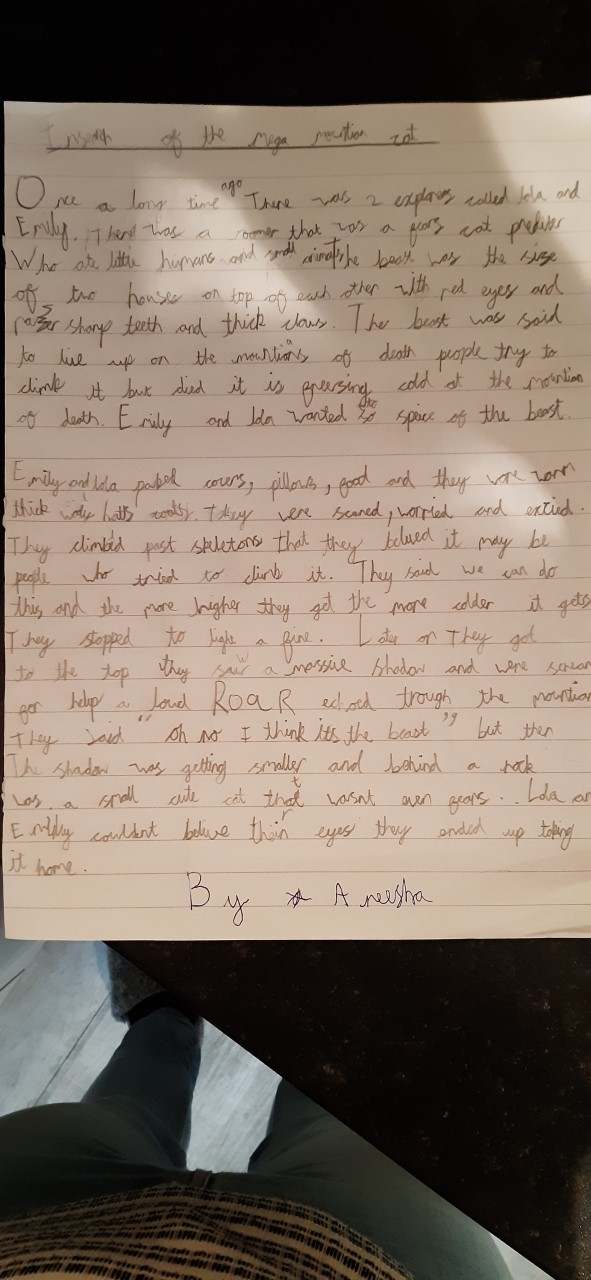 Insearch of the mega mountian cat
Once a long time ago There was 2 explorers called lola and
Emily. There was a roomer that was a fears cat prediter
Who ate little humans and small animals The beast was the size
off two houses on top of each other with red eyes and
razer sharp teeth and thick claws. The beast was said
to live up on the mountians of death people try to
climb it but died it is freersing cold at the mountian
of death. Emily and lola wanted to spice of the beast.
Emily and lola packed covers, pillows, food and they wore warm
thick wooly hatts coats. They were scared, worried and extied.
They climbed past skeletons that they belived it may be
people who tried to climb it. They said we can do
this and the more higher they get the more colder it gets
They stopped to light a fire. Later on They got
to the top they saw a massive shadow and were scream
for help a loud ROaR echoed trough the mountian
They said "oh no I think its the beast" but then
The shadow was getting smaller and behind a rock
was a small cute cat that wasnt even fears.. Lola an
Emily couldnt belive their eyes they ended up taking
it home.
By Aneesha